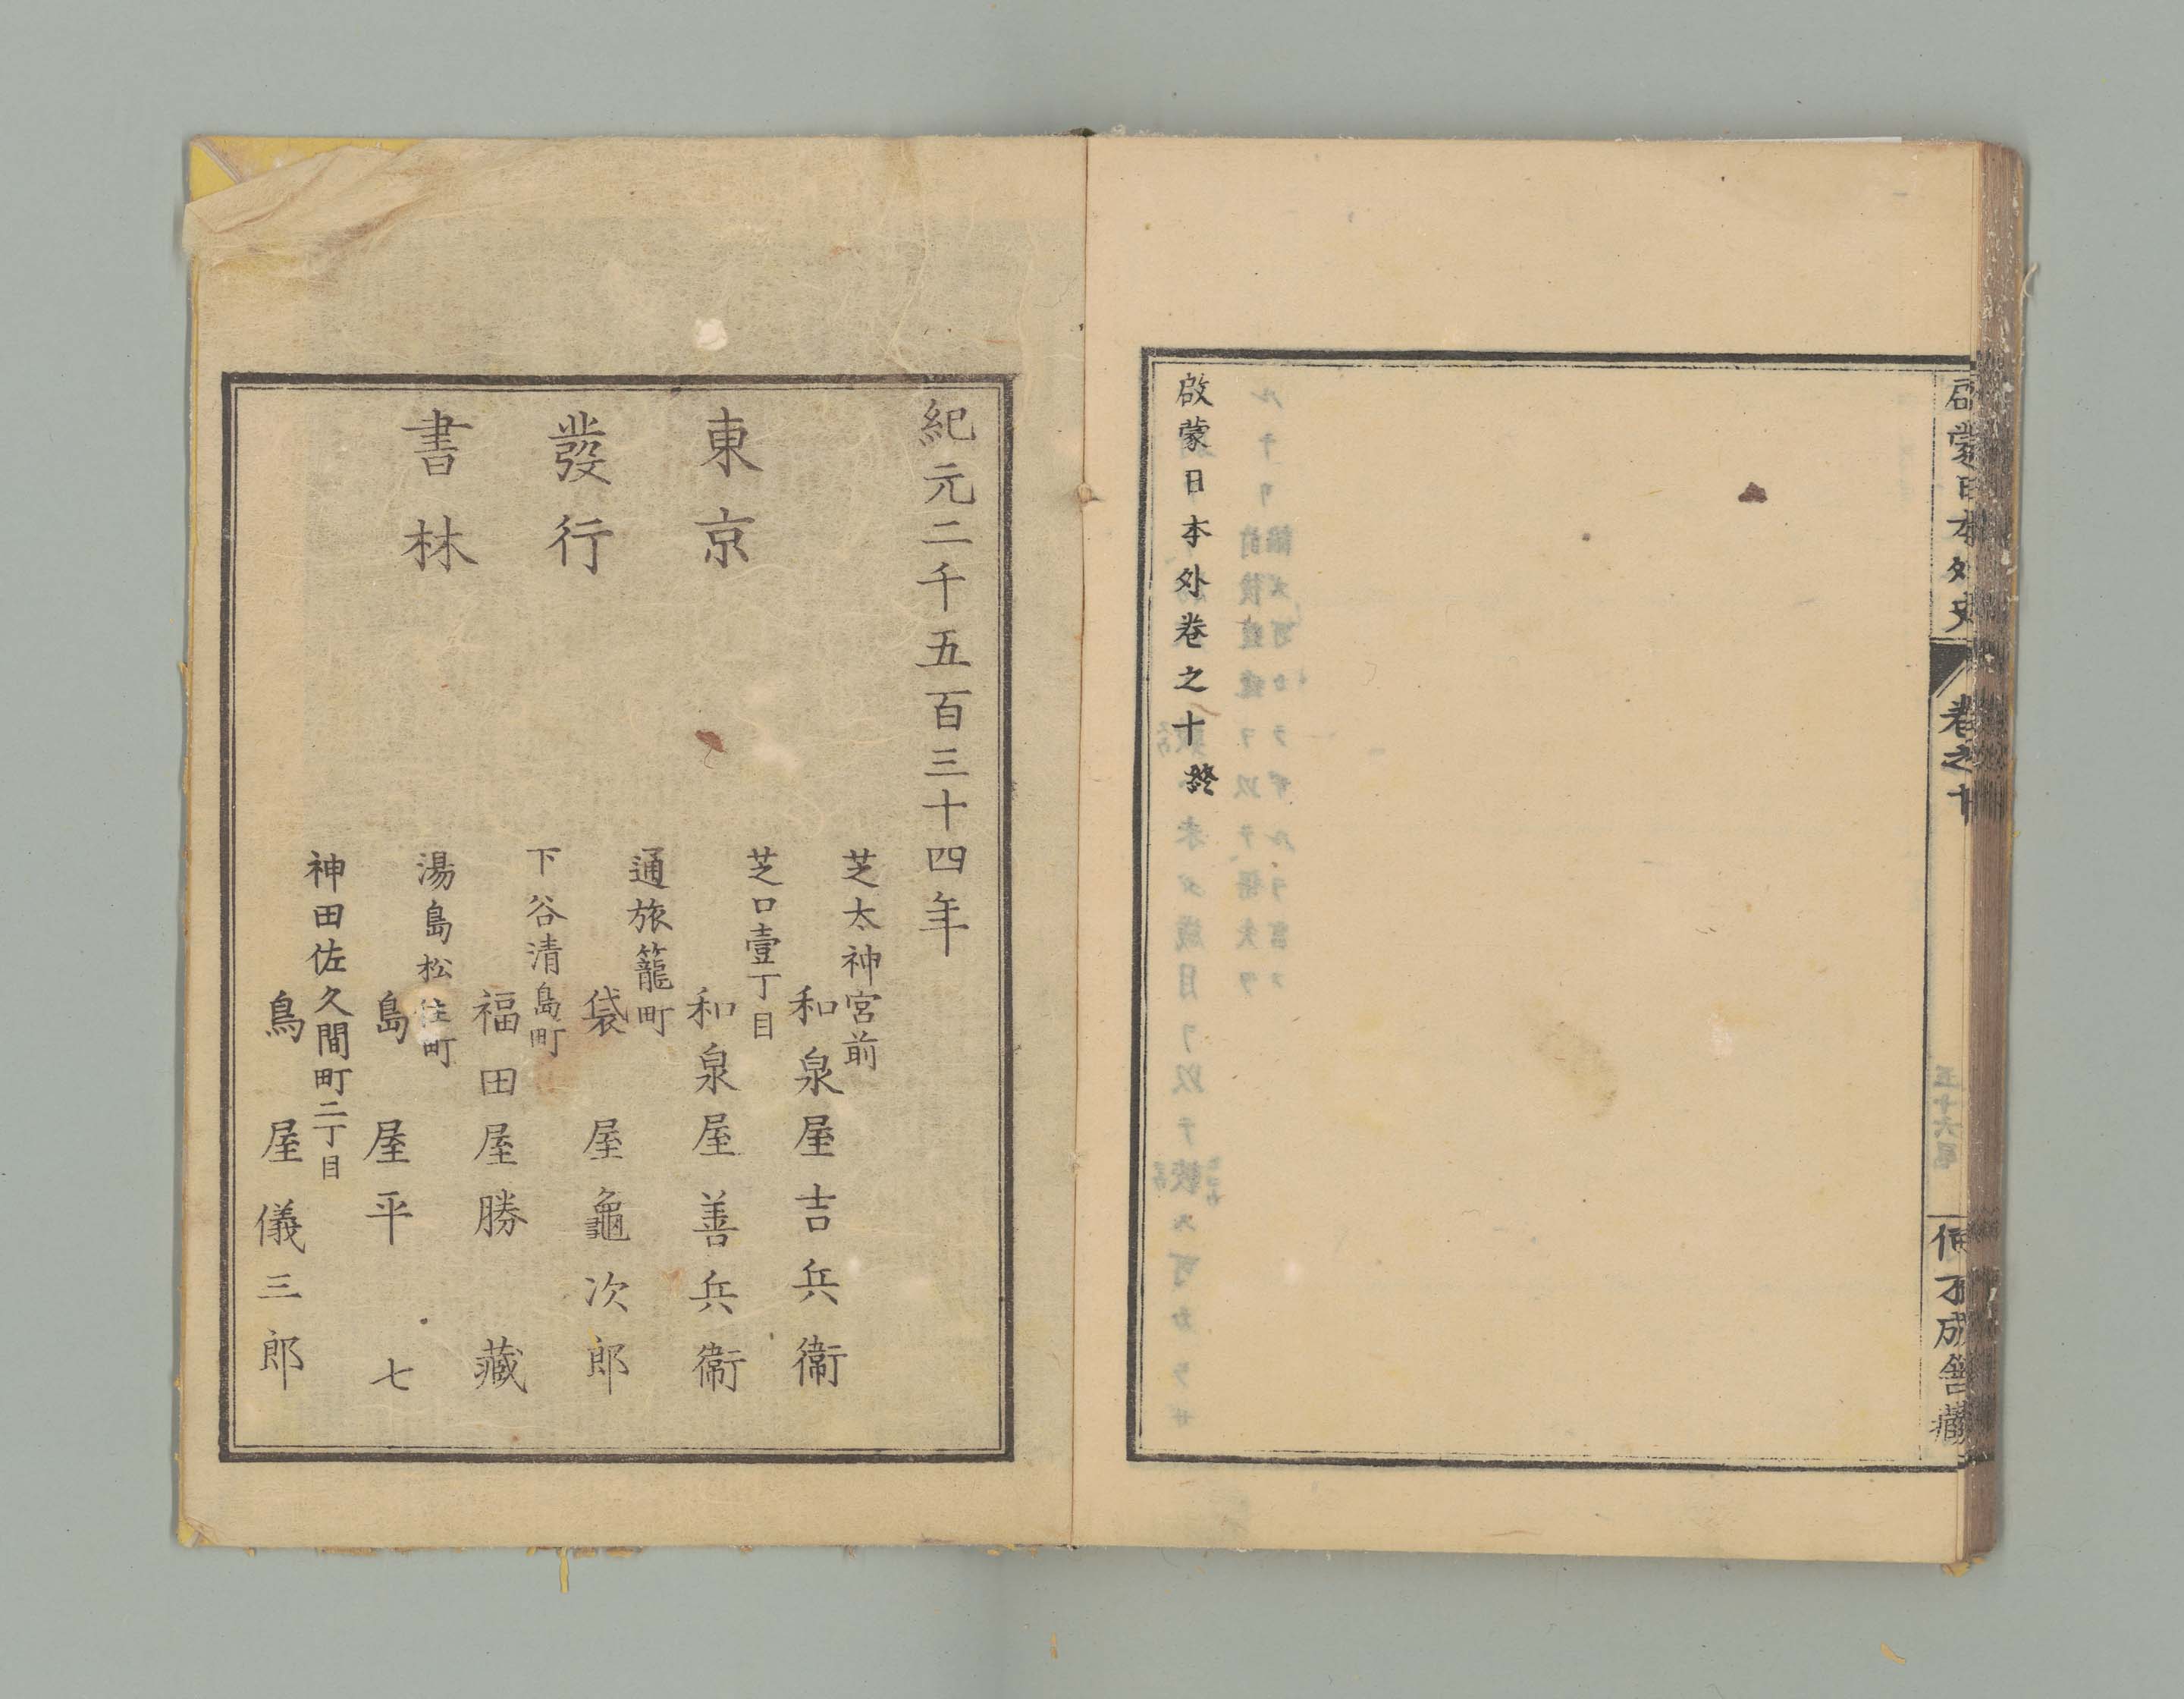 啟蒙日本外史
卷之十
成舍藏
啟蒙日本外卷之十終
紀元二千五百三十四年
東京
發行
書林
芝太神宮前
和泉屋吉兵衞
芝口壹丁目
和泉屋善兵衞
通旅籠町
袋屋龜次郎
下谷清島町
福田屋勝藏
湯島松住町
島屋平七
神田佐久間町二丁目
鳥屋儀三郎